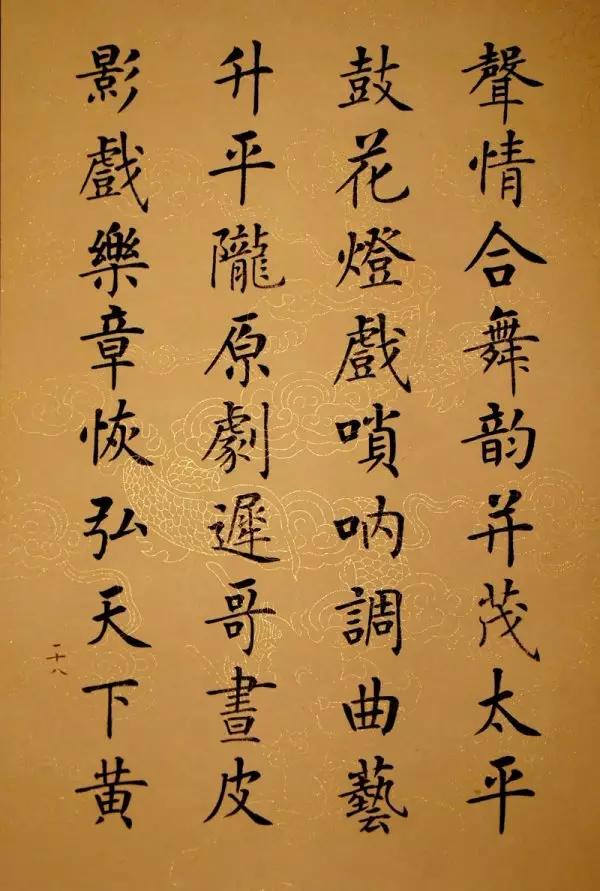 聲情合舞韵并茂太平
鼓花燈戲嗩吶調曲藝
升平隴原劇遲哥晝皮
影戲樂章恢弘天下黄
一十八